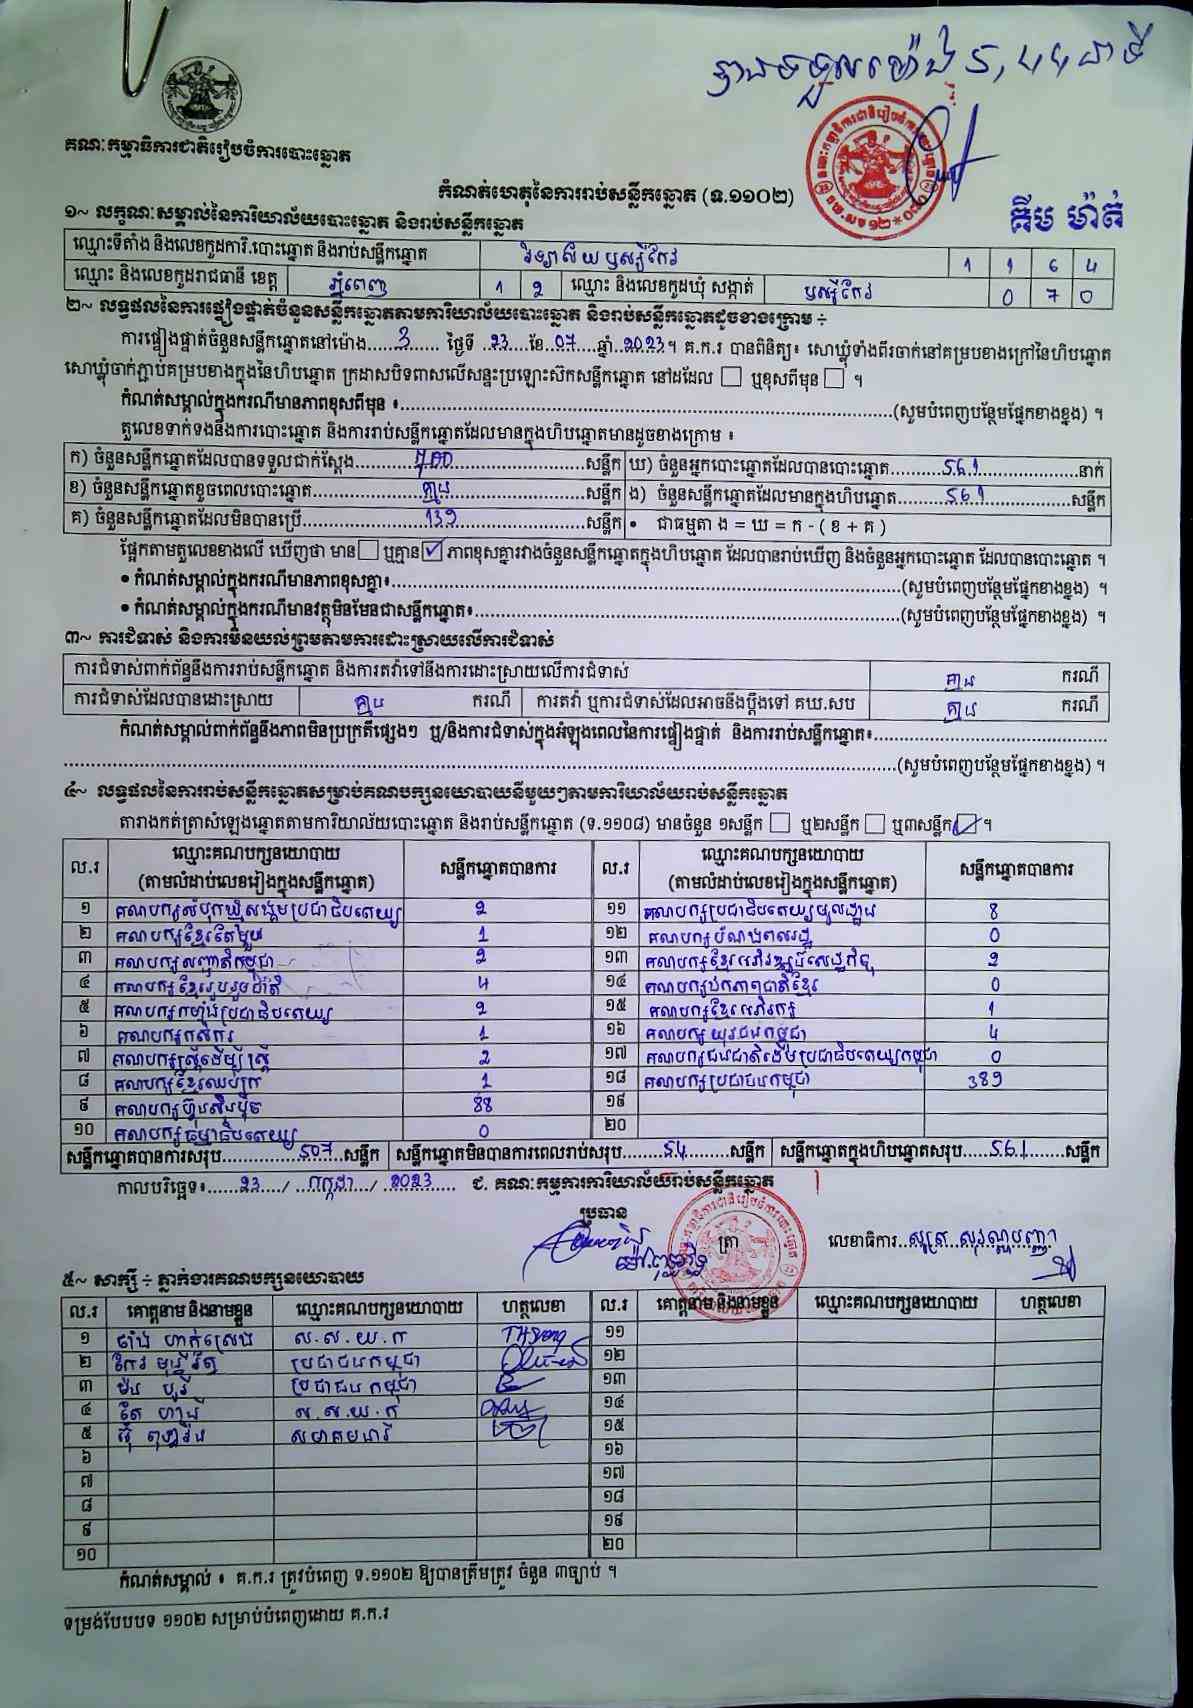 បានទទួលម៉ោង 5,44 នាទី
គណៈកម្មាធិការជាតិរៀបចំការបោះឆ្នោត
កំណត់ហេតុនៃការរាប់សន្លឹកឆ្នោត (ទ.១១០២)
គឹម ម៉ាត់
១~ លក្ខណៈសម្គាល់នៃការិយាល័យបោះឆ្នោត និងរាប់សន្លឹកឆ្នោត
ឈ្មោះទីតាំង និងលេខកូដការិ.បោះឆ្នោត និងរាប់សន្លឹកឆ្នោត វិទ្យាល័យឫស្សីកែវ 1 1 6 4
ឈ្មោះ និងលេខកូដរាជធានី ខេត្ត ភ្នំពេញ 1 2 ឈ្មោះ និងលេខកូដឃុំ សង្កាត់ ឫស្សីកែវ 0 7 0
២~ លទ្ធផលនៃការផ្ទៀងផ្ទាត់ចំនួនសន្លឹកឆ្នោតតាមការិយាល័យបោះឆ្នោត និងរាប់សន្លឹកឆ្នោតដូចខាងក្រោម ÷
ការផ្ទៀងផ្ទាត់ចំនួនសន្លឹកឆ្នោតនៅម៉ោង...3... ថ្ងៃទី...23...ខែ...07...ឆ្នាំ...2023។ គ.ក.រ បានពិនិត្យ៖ សោឃ្លុំទាំងពីរចាក់នៅគម្របខាងក្រៅនៃហិបឆ្នោត
សោឃ្លុំចាក់ភ្ជាប់គម្របខាងក្នុងនៃហិបឆ្នោត ក្រដាសបិទពាសលើសន្ទះប្រឡោះស៊កសន្លឹកឆ្នោត នៅដដែល ☐ ឬខុសពីមុន ☐ ។
កំណត់សម្គាល់ក្នុងករណីមានភាពខុសពីមុន ៖...(សូមបំពេញបន្ថែមផ្នែកខាងខ្នង) ។
តួលេខទាក់ទងនឹងការបោះឆ្នោត និងការរាប់សន្លឹកឆ្នោតដែលមានក្នុងហិបឆ្នោតមានដូចខាងក្រោម ៖
ក) ចំនួនសន្លឹកឆ្នោតដែលបានទទួលជាក់ស្តែង...700...សន្លឹក ឃ) ចំនួនអ្នកបោះឆ្នោតដែលបានបោះឆ្នោត...561...នាក់
ខ) ចំនួនសន្លឹកឆ្នោតខូចពេលបោះឆ្នោត...គ្មាន...សន្លឹក ង) ចំនួនសន្លឹកឆ្នោតដែលមានក្នុងហិបឆ្នោត...561...សន្លឹក
គ) ចំនួនសន្លឹកឆ្នោតដែលមិនបានប្រើ...139...សន្លឹក • ជាធម្មតា ង = ឃ = ក - ( ខ + គ )
ផ្អែកតាមតួលេខខាងលើ ឃើញថា មាន ☐ ឬគ្មាន ☑ ភាពខុសគ្នារវាងចំនួនសន្លឹកឆ្នោតក្នុងហិបឆ្នោត ដែលបានរាប់ឃើញ និងចំនួនអ្នកបោះឆ្នោត ដែលបានបោះឆ្នោត ។
• កំណត់សម្គាល់ក្នុងករណីមានភាពខុសគ្នា៖...(សូមបំពេញបន្ថែមផ្នែកខាងខ្នង) ។
• កំណត់សម្គាល់ក្នុងករណីមានវត្ថុមិនមែនជាសន្លឹកឆ្នោត៖...(សូមបំពេញបន្ថែមផ្នែកខាងខ្នង) ។
៣~ ការជំទាស់ និងការមិនយល់ព្រមតាមការដោះស្រាយលើការជំទាស់
ការជំទាស់ពាក់ព័ន្ធនឹងការរាប់សន្លឹកឆ្នោត និងការតវ៉ាទៅនឹងការដោះស្រាយលើការជំទាស់ គ្មាន ករណី
ការជំទាស់ដែលបានដោះស្រាយ គ្មាន ករណី ការតវ៉ា ឬការជំទាស់ដែលអាចនឹងប្តឹងទៅ គឃ.សប គ្មាន ករណី
កំណត់សម្គាល់ពាក់ព័ន្ធនឹងភាពមិនប្រក្រតីផ្សេងៗ ឬ/និងការជំទាស់ក្នុងអំឡុងពេលនៃការផ្ទៀងផ្ទាត់ និងការរាប់សន្លឹកឆ្នោត៖...
...(សូមបំពេញបន្ថែមផ្នែកខាងខ្នង) ។
៤~ លទ្ធផលនៃការរាប់សន្លឹកឆ្នោតសម្រាប់គណបក្សនយោបាយនីមួយៗតាមការិយាល័យរាប់សន្លឹកឆ្នោត
តារាងកត់ត្រាសំឡេងឆ្នោតតាមការិយាល័យបោះឆ្នោត និងរាប់សន្លឹកឆ្នោត (ទ.១១០៨) មានចំនួន ១សន្លឹក ☐ ឬ២សន្លឹក ☐ ឬ៣សន្លឹក ☑ ។
ល.រ ឈ្មោះគណបក្សនយោបាយ (តាមលំដាប់លេខរៀងក្នុងសន្លឹកឆ្នោត) សន្លឹកឆ្នោតបានការ ល.រ ឈ្មោះគណបក្សនយោបាយ (តាមលំដាប់លេខរៀងក្នុងសន្លឹកឆ្នោត) សន្លឹកឆ្នោតបានការ
១ គណបក្សសំបុកឃ្មុំសង្គមប្រជាធិបតេយ្យ 2 ១១ គណបក្សប្រជាធិបតេយ្យមូលដ្ឋាន 8
២ គណបក្សខ្មែរតែមួយ 1 ១២ គណបក្សបំណងពលរដ្ឋ 0
៣ គណបក្សសញ្ជាតិកម្ពុជា 2 ១៣ គណបក្សខ្មែរអភិវឌ្ឍន៍សេដ្ឋកិច្ច 2
៤ គណបក្សខ្មែររួបរួមជាតិ 4 ១៤ គណបក្សឯកភាពជាតិខ្មែរ 0
៥ គណបក្សកម្លាំងប្រជាធិបតេយ្យ 2 ១៥ គណបក្សខ្មែរអភិរក្ស 1
៦ គណបក្សកសិករ 1 ១៦ គណបក្សយុវជនកម្ពុជា 4
៧ គណបក្សស្ត្រីដើម្បីស្ត្រី 2 ១៧ គណបក្សជនជាតិដើមប្រជាធិបតេយ្យកម្ពុជា 0
៨ គណបក្សខ្មែរឈប់ក្រ 1 ១៨ គណបក្សប្រជាជនកម្ពុជា 389
៩ គណបក្សហ៊្វុនស៊ិនប៉ិច 88 ១៩
១០ គណបក្សធម្មាធិបតេយ្យ 0 ២០
សន្លឹកឆ្នោតបានការសរុប...507...សន្លឹក សន្លឹកឆ្នោតមិនបានការពេលរាប់សរុប...54...សន្លឹក សន្លឹកឆ្នោតក្នុងហិបឆ្នោតសរុប...561...សន្លឹក
កាលបរិច្ឆេទ៖...23.../...កក្កដា.../...2023... ជ. គណៈកម្មការការិយាល័យរាប់សន្លឹកឆ្នោត
ប្រធាន
ត្រា លេខាធិការ...សូត្រ សុវណ្ណបញ្ញា
៥~ សាក្សី ÷ ភ្នាក់ងារគណបក្សនយោបាយ
ល.រ គោត្តនាម និងនាមខ្លួន ឈ្មោះគណបក្សនយោបាយ ហត្ថលេខា ល.រ គោត្តនាម និងនាមខ្លួន ឈ្មោះគណបក្សនយោបាយ ហត្ថលេខា
១ ស.ស.យ.ក ១១
២ ប្រជាជនកម្ពុជា ១២
៣ ប្រជាជនកម្ពុជា ១៣
៤ ស.ស.យ.ក ១៤
៥ សមាគមនារី ១៥
៦ ១៦
៧ ១៧
៨ ១៨
៩ ១៩
១០ ២០
កំណត់សម្គាល់ ៖ គ.ក.រ ត្រូវបំពេញ ទ.១១០២ ឱ្យបានត្រឹមត្រូវ ចំនួន ៣ច្បាប់ ។
ទម្រង់បែបបទ ១១០២ សម្រាប់បំពេញដោយ គ.ក.រ